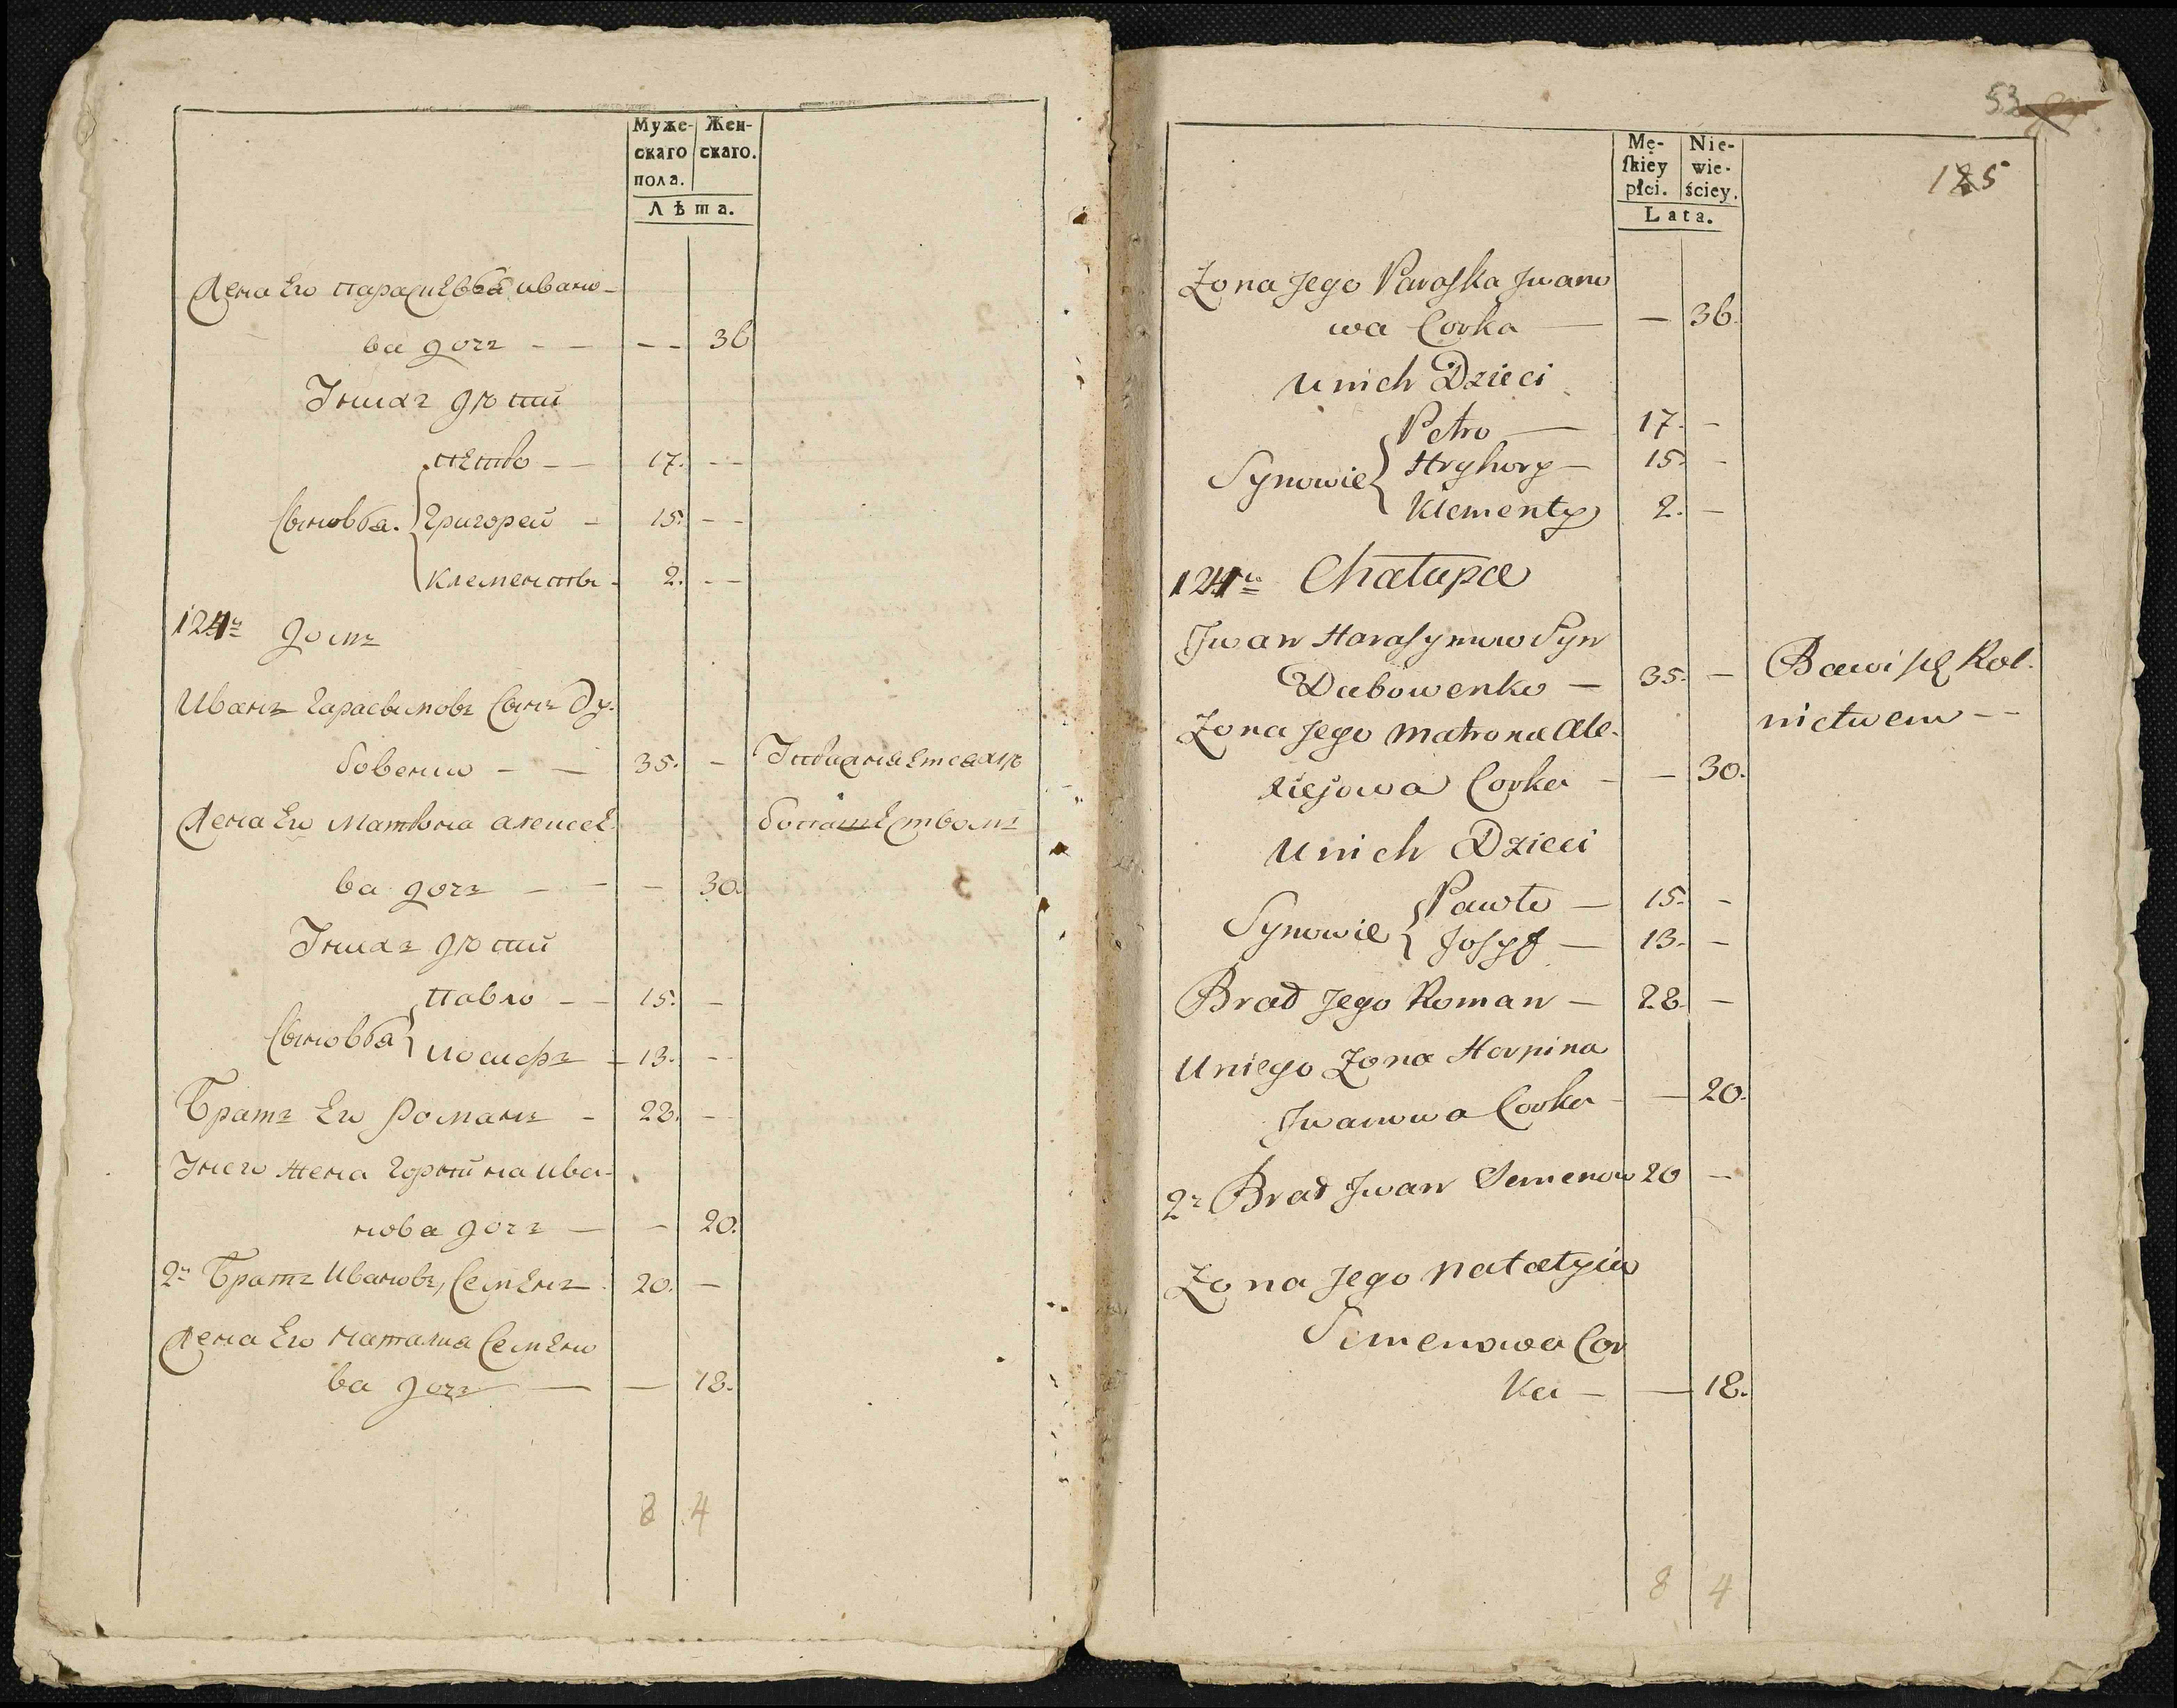 Муже-
скаго
пола.
Жен-
скаго.
Лѣта.
Жена Его Парасиевъя Ивано-
ва дочъ - - - - 36
Унихъ дѣти
Петро - - 17. - -
Сыновья. Григорей - 15. - -
Клементы - 2. - -
124ъ Домъ
Иванъ Гарасымовъ Сынъ Ду-
бовенко - - 35. -
Жена Его Матрона Алексее-
ва дочъ - - - 30.
Унихъ дѣти
Павло - - 15. -
Сыновья Иосифъ - 13. -
Братъ Его Романъ - 28. -
Унего Жена Горпина Ива-
нова дочъ - - 20.
2й Братъ Ивановъ, Семенъ 20. -
Жена Его Наталиа Семено
ва дочъ - - 18.
8 4
53
125
Mę-
ſkiey
płci.
Nie-
wie-
ściey.
Lata.
Zona Jego Paraſka Jwano
wa Corka - - 36.
Unich Dzieci
Petro - 17. -
Synowie Hryhory - 15. -
Klementy 2. -
124a Chałupa
Jwan Haraſymow Syn
Dubowenko - 35. - Bawi ſię Rol-
nictwem - -
Zona Jego Matrona Ale-
xiejowa Corka - - 30.
Unich Dzieci
Pawło - 15. -
Synowie Joſyf - 13. -
Brad Jego Roman - 28. -
Uniego Zona Horpina
Jwanowa Corka - - 20.
2i Brad Jwan Semenow 20 -
Zona Jego Natalyia
Simenowa Cor
ka - - 18.
8 4